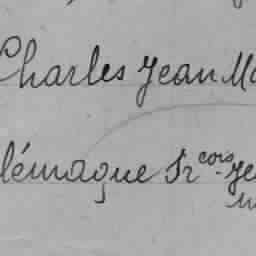 Charles Jean Ma
lémaque Sr cors. Je